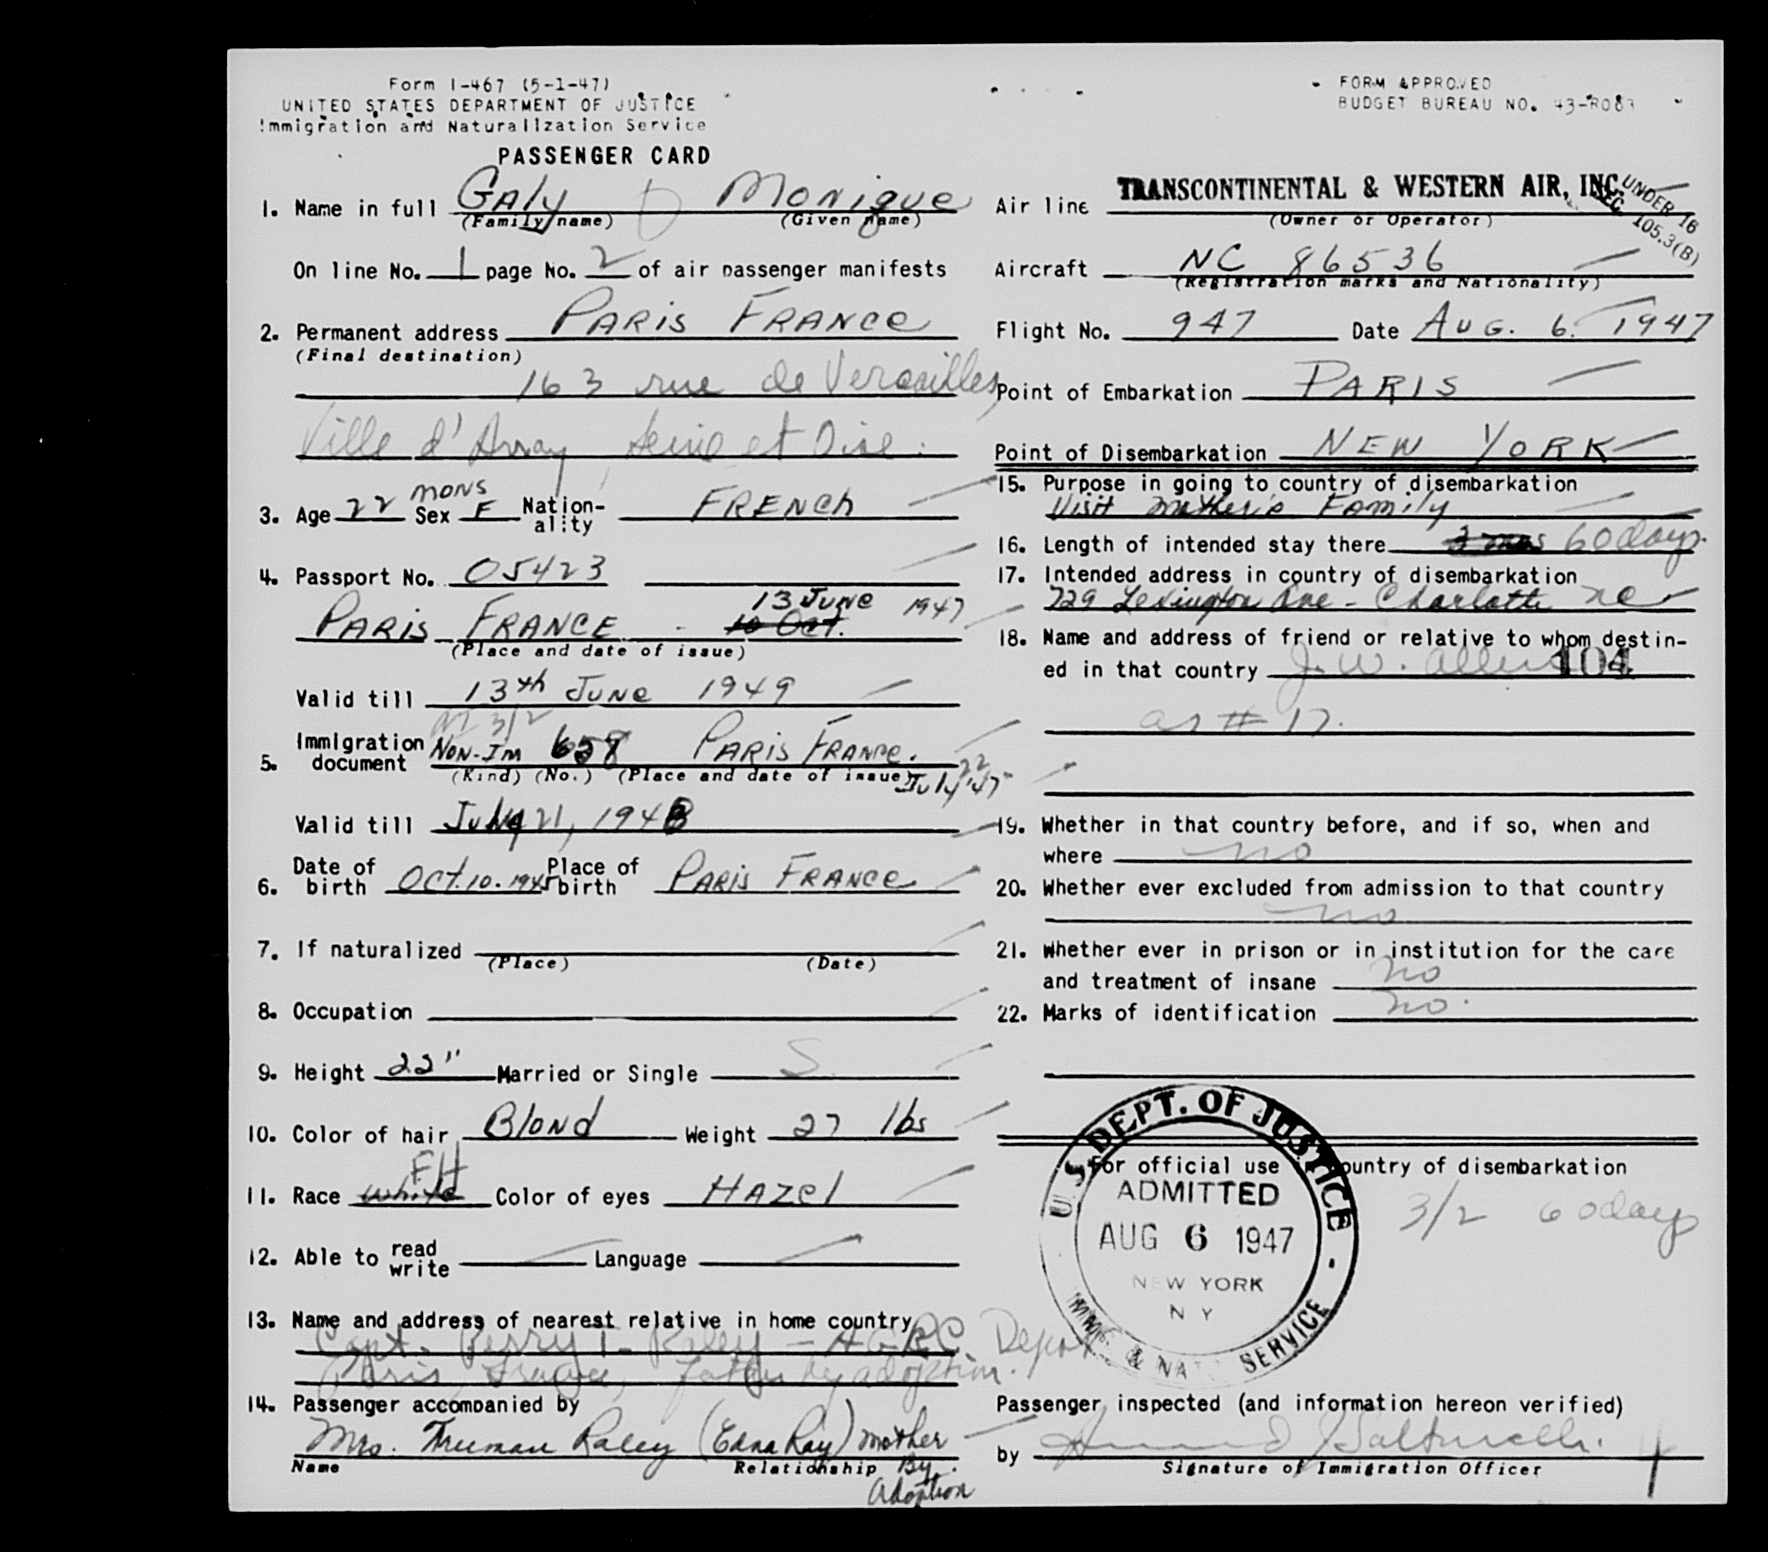 Form I-467 (5-1-47)
UNITED STATES DEPARTMENT OF JUSTICE
Immigration and Naturalization Service
PASSENGER CARD
FORM APPROVED
BUDGET BUREAU NO. 43-R083
1. Name in full GALY Monique
(Family name) (Given name)
On line No. 1 page No. 2 of air passenger manifests
2. Permanent address PARIS FRANCE
(Final destination)
163 rue de Versailles,
Ville d'Avray, Seine et Oise.
3. Age 22 mons Sex F Nation-ality FRENCH
4. Passport No. 05423
PARIS FRANCE - 10 Oct. 13 JUNE 1947
(Place and date of issue)
Valid till 13th JUNE 1949
3/2
5. Immigration document NON-IM 658 PARIS FRANCE. 22 July '47
(Kind) (No.) (Place and date of issue)
Valid till July 21, 1948
6. Date of birth Oct. 10. 1945 Place of birth PARIS FRANCE
7. If naturalized
(Place) (Date)
8. Occupation
9. Height 22" Married or Single S.
10. Color of hair Blond Weight 27 lbs
11. Race white FH Color of eyes HAZel
12. Able to read write Language
13. Name and address of nearest relative in home country
Capt. Perry T. Raley - AGRC Depot
Paris, France, father by adoption.
14. Passenger accompanied by
Mrs. Truman Raley (Edna Ray) mother By Adoption
Name Relationship
Air line TRANSCONTINENTAL & WESTERN AIR, INC.
(Owner or Operator)
UNDER 16
SEC. 105.3(B)
Aircraft NC 86536
(Registration marks and Nationality)
Flight No. 947 Date AUG. 6. 1947
Point of Embarkation PARIS
Point of Disembarkation NEW YORK
15. Purpose in going to country of disembarkation
Visit mother's Family
16. Length of intended stay there 60 days.
17. Intended address in country of disembarkation
729 Lexington Ave - Charlotte NC
18. Name and address of friend or relative to whom destin-
ed in that country J. W. Allen 104
as # 17.
19. Whether in that country before, and if so, when and
where no
20. Whether ever excluded from admission to that country
no
21. Whether ever in prison or in institution for the care
and treatment of insane no
22. Marks of identification no.
For official use country of disembarkation
U.S. DEPT. OF JUSTICE - IMMIG. & NAT. SERVICE
ADMITTED
AUG 6 1947
NEW YORK
N Y
3/2 60 days
Passenger inspected (and information hereon verified)
by
Signature of Immigration Officer